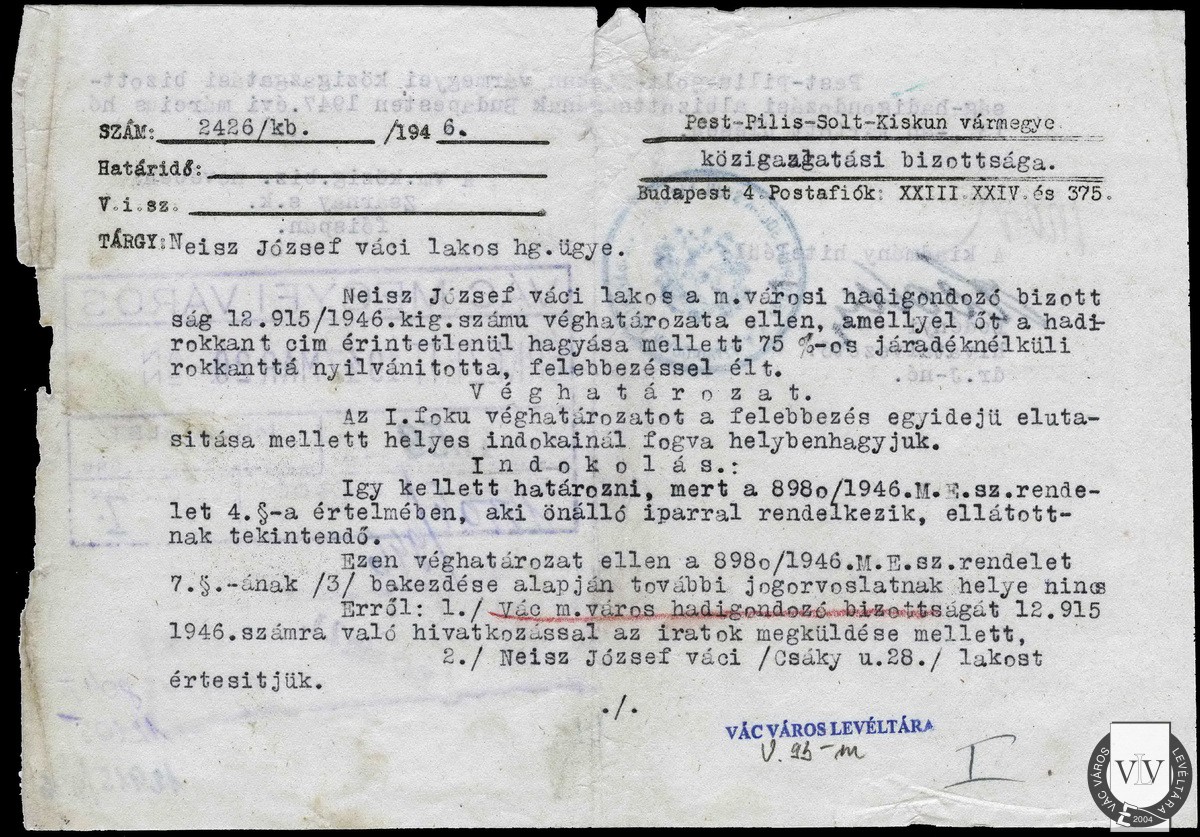 SZÁM: 2426/kb. /194 6.
Határidő:
V.i.sz.
TÁRGY: Neisz József váci lakos hg.ügye.
Pest-Pilis-Solt-Kiskun vármegye
közigazgatási bizottsága.
Budapest 4.Postafiók: XXIII.XXIV.és 375.
Neisz József váci lakos a m.városi hadigondozó bizott
ság 12.915/1946.kig.számu véghatározata ellen, amellyel őt a hadi-
rokkant cim érintetlenül hagyása mellett 75 %-os járadéknélküli
rokkanttá nyilvánitotta, felebbezéssel élt.
V é g h a t á r o z a t.
Az I.foku véghatározatot a felebbezés egyidejü eluta-
sitása mellett helyes indokainál fogva helybenhagyjuk.
I n d o k o l á s.:
Igy kellett határozni, mert a 898o/1946.M.E.sz.rende-
let 4.§-a értelmében, aki önálló iparral rendelkezik, ellátott-
nak tekintendő.
Ezen véghatározat ellen a 898o/1946.M.E.sz.rendelet
7.§.-ának /3/ bakezdése alapján további jogorvoslatnak helye nincs
Erről: 1./ Vác m.város hadigondozó bizottságát 12.915
1946.számra való hivatkozással az iratok megküldése mellett,
2./ Neisz József váci /Csáky u.28./ lakost
értesitjük.
./.
VÁC VÁROS LEVÉLTÁRA
V. 93-m
I
VÁC VÁROS LEVÉLTÁRA
VLV
2004